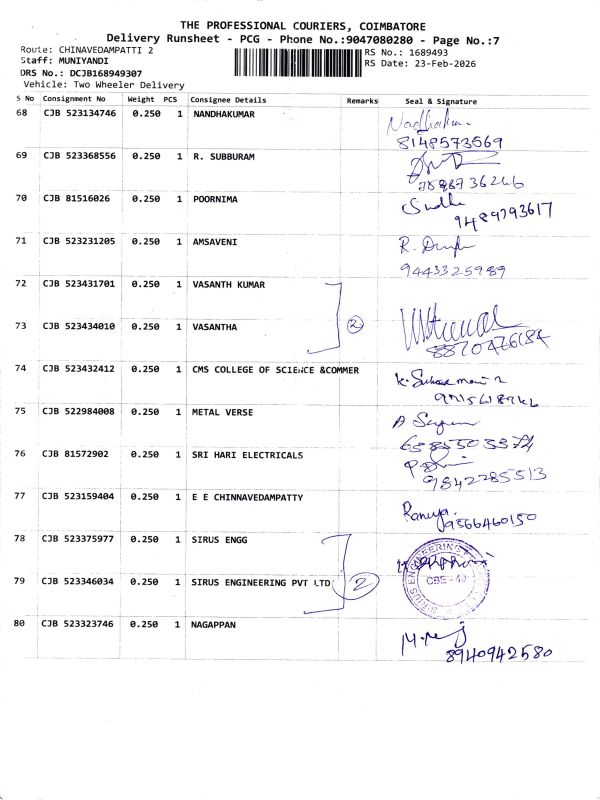 THE PROFESSIONAL COURIERS, COIMBATORE
Delivery Runsheet - PCG - Phone No.:9047080280 - Page No.:7
Route: CHINAVEDAMPATTI 2
RS No.: 1689493
Staff: MUNIYANDI
RS Date: 23-Feb-2026
DRS No.: DCJB168949307
Vehicle: Two Wheeler Delivery
S No Consignment No Weight PCS Consignee Details Remarks Seal & Signature
68 CJB 523134746 0.250 1 NANDHAKUMAR
8148573569
69 CJB 523368556 0.250 1 R. SUBBURAM
70 CJB 81516026 0.250 1 POORNIMA
9489793617
71 CJB 523231205 0.250 1 AMSAVENI
9443325989
72 CJB 523431701 0.250 1 VASANTH KUMAR
2
73 CJB 523434010 0.250 1 VASANTHA
74 CJB 523432412 0.250 1 CMS COLLEGE OF SCIENCE &COMMER
75 CJB 522984008 0.250 1 METAL VERSE
76 CJB 81572902 0.250 1 SRI HARI ELECTRICALS
9842285513
77 CJB 523159404 0.250 1 E E CHINNAVEDAMPATTY
Ramya.
9566460150
78 CJB 523375977 0.250 1 SIRUS ENGG
79 CJB 523346034 0.250 1 SIRUS ENGINEERING PVT LTD
2
80 CJB 523323746 0.250 1 NAGAPPAN
8940942580